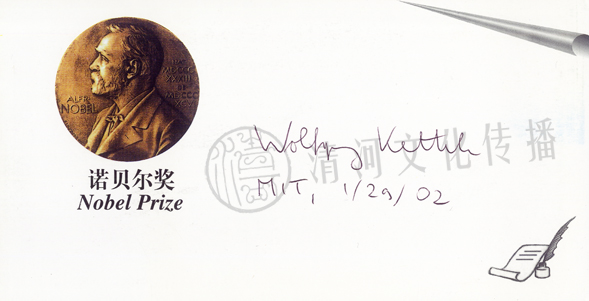 ALFR.
NOBEL
诺贝尔奖
Nobel Prize
Wolfgang Ketterle
MIT, 1/29/02
清河文化传播